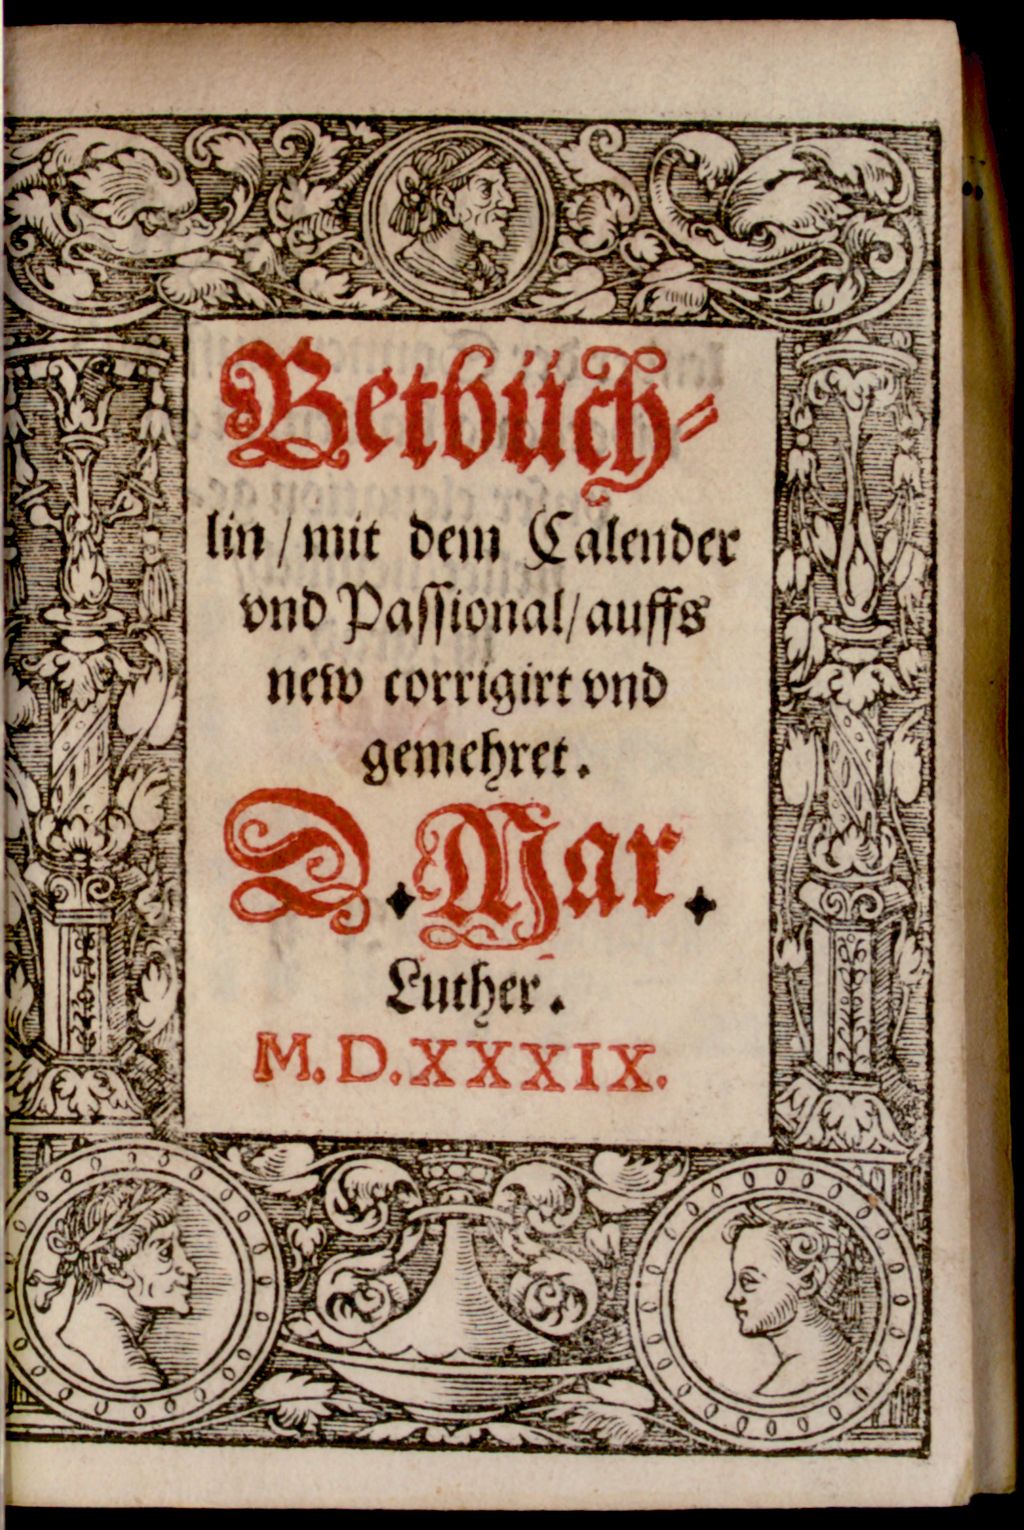 Betbüch-
lin / mit dem Calender
vnd Passional / auffs
new corrigirt vnd
gemehret.
D. Mar.
Luther.
M. D. XXXIX.